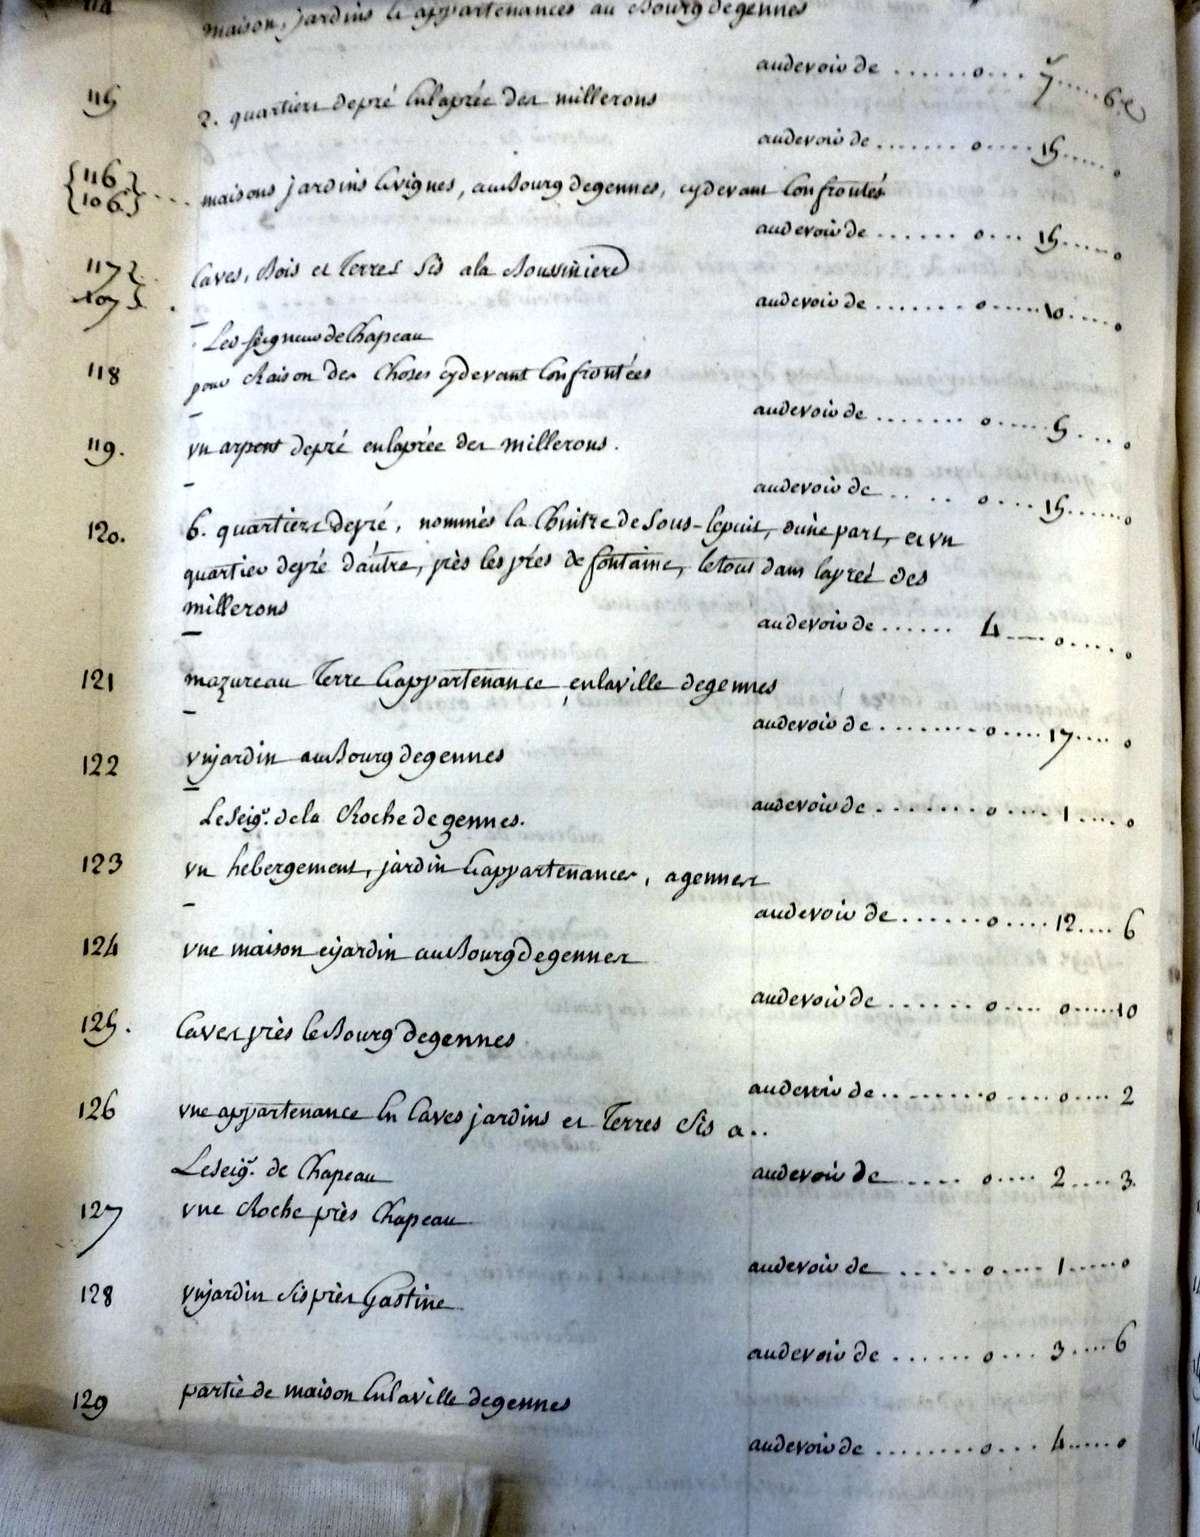 114
maison, jardins & appartenances au Bourg de gennes
au devoir de ...... 0 ... 7 ..... 6 d
115 2. quartiers de pré en la prée des millerons
au devoir de ....... 0 .... 15 ..... 0
{116}
{106} .... maisons jardins & vignes, au Bourg de gennes, cy devant Confrontés
au devoir de ...... 0 ... 15 ..... 0
117}
107} . Caves, Bois et Terres sis a la Boussiniere
au devoir de ....... 0 ..... 10 ..... 0
Les seigneurs de Chapeau
118 pour Raison des Choses cy devant Confrontées
au devoir de ....... 0 .... 5 .... 0
119. un arpent de pré en la prée des millerons.
au devoir de .. .. .. 0 .... 15 ..... 0
120. 6. quartiers de pré, nommés la Chintre de Sous-le puit, d'une part, et un
quartier de pré d'autre, près les prés de fontaine, le tout dans la prée des
millerons
au devoir de ...... 4 .... 0 ..... 0
121 mazureau Terre & appartenance en la ville de gennes
au devoir de ........ 0 .... 17 .... 0
122 un jardin au Bourg de gennes
au devoir de ........ 0 .... 1 .... 0
Le Seigr. de la Roche de gennes.
123 un hebergement, jardin & appartenances, a gennes
au devoir de ....... 0 .... 12 .... 6
124 une maison et jardin au Bourg de gennes
au devoir de ........ 0 .... 0 ..... 10
125. Caves près le Bourg de gennes
au devoir de ......... 0 .... 0 .... 2
126 une appartenance en Caves jardins et Terres sis a..
au devoir de ..... 0 .... 2 .... 3
Le Seigr. de Chapeau
127 une Roche près Chapeau
au devoir de ....... 0 .... 1 ..... 0
128 un jardin sis près Gastine
au devoir de ....... 0 ... 3 .... 6
129 partie de maison en la ville de gennes
au devoir de ........ 0 ... 4 ..... 0